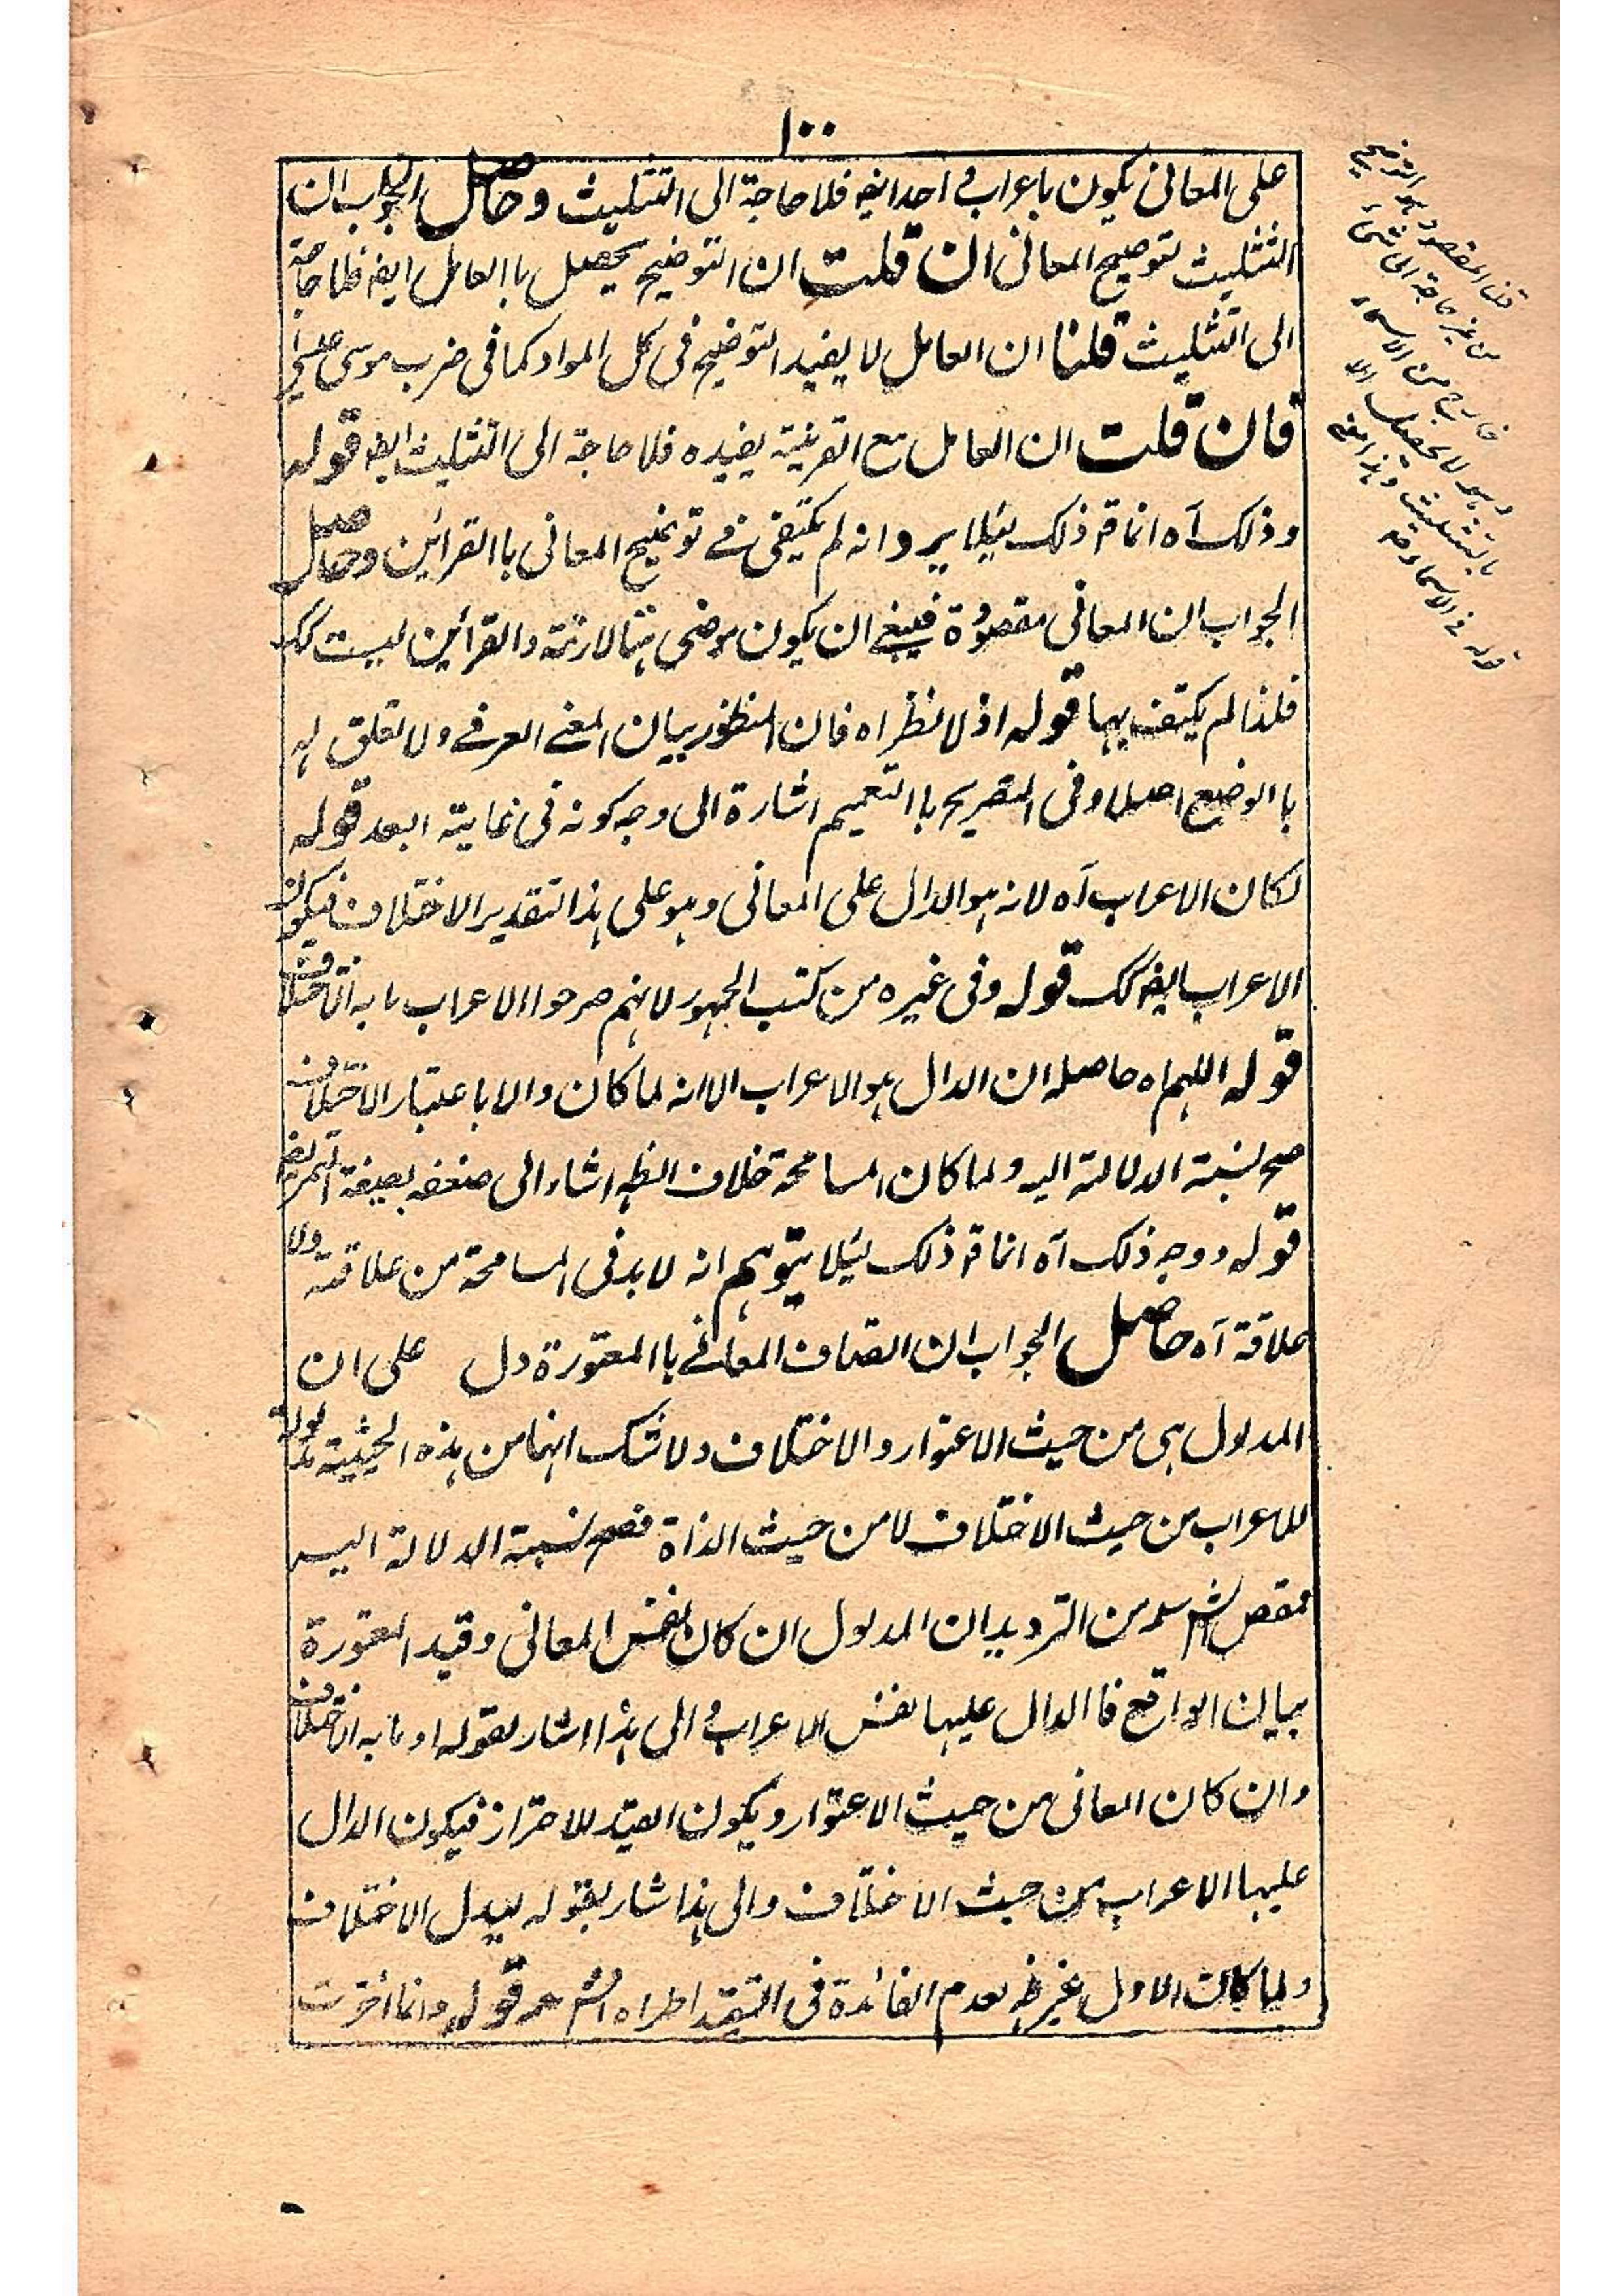 ١٠٠
على المعانى يكون باعراب واحد ايضه فلا حاجة الى التثليث وحاصل الجواب ان
التثليث لتوضيح المعانى ان قلت ان التوضيح يحصل باالعامل ايضه فلا حاجة
الى التثليث قلنا ان العامل لا يفيد التوضيح فى كل المواد كما فى ضرب موسى عيسى
فان قلت ان العامل مع القرينة يفيده فلا حاجة الى التثليث ايضه قوله
وذلك آه انما قم ذلك لئلا يرد انه لم يكتفى فى توضيح المعانى باالقرائن وحاصل
الجواب ان المعانى مقصودة فينبغى ان يكون موضى بينا لازمة والقرائن ليست كك
فلذا لم يكتف بها قوله اذ لا نظر اه فان المنظور بيان المعنى العرفى ولا تعلق له
باالوضع اصلا وفى التصريح باالتعميم اشارة الى وجه كونه فى غاية البعد قوله
لكان الاعراب آه لانه هو الدال على المعانى وهو على هذا التقدير الاختلاف فيكون
الاعراب ايضه كك قوله وفى غيره من كتب الجمهور لانهم صرحوا الاعراب ما به الاختلاف
قوله اللهم اه حاصله ان الدال هو الاعراب الا انه لما كان دالا باعتبار الاختلاف
صح نسبة الدلالة اليه ولما كان المسامحة خلاف الظه اشار الى ضعفه بصيغة التمريض
قوله ووجه ذلك آه انما قم ذلك لئلا يتوهم انه لا بد فى المسامحة من علاقة ولا
علاقة آه حاصل الجواب ان اتصاف المعانى باالمعتورة دل على ان
المدلول هى من حيث الاعتوار والاختلاف ولا شك انها من هذه الحيثية مدلولة
للاعراب من حيث الاختلاف لا من حيث الذاة فصح نسبة الدلالة اليه
مقص الشم سلمه من الترديد ان المدلول ان كان نفس المعانى وقيد المعتورة
بيان الواقع فاالدال عليها نفس الاعراب والى هذا اشار بقوله او ما به الاختلاف
وان كان المعانى من حيث الاعتوار ويكون القيد للاحتراز فيكون الدال
عليها الاعراب من حيث الاختلاف والى هذا اشار بقوله ليدل الاختلاف
ولما كان الاول غير ظه لعدم الفائدة فى التقييد اطراه الشم قوله وانما اخرت
قلنا المقصود هو التوضيح
من غير حاجة الى شئ
خارج من الاسماء
وهو لا يحصل الا
باالتثليث